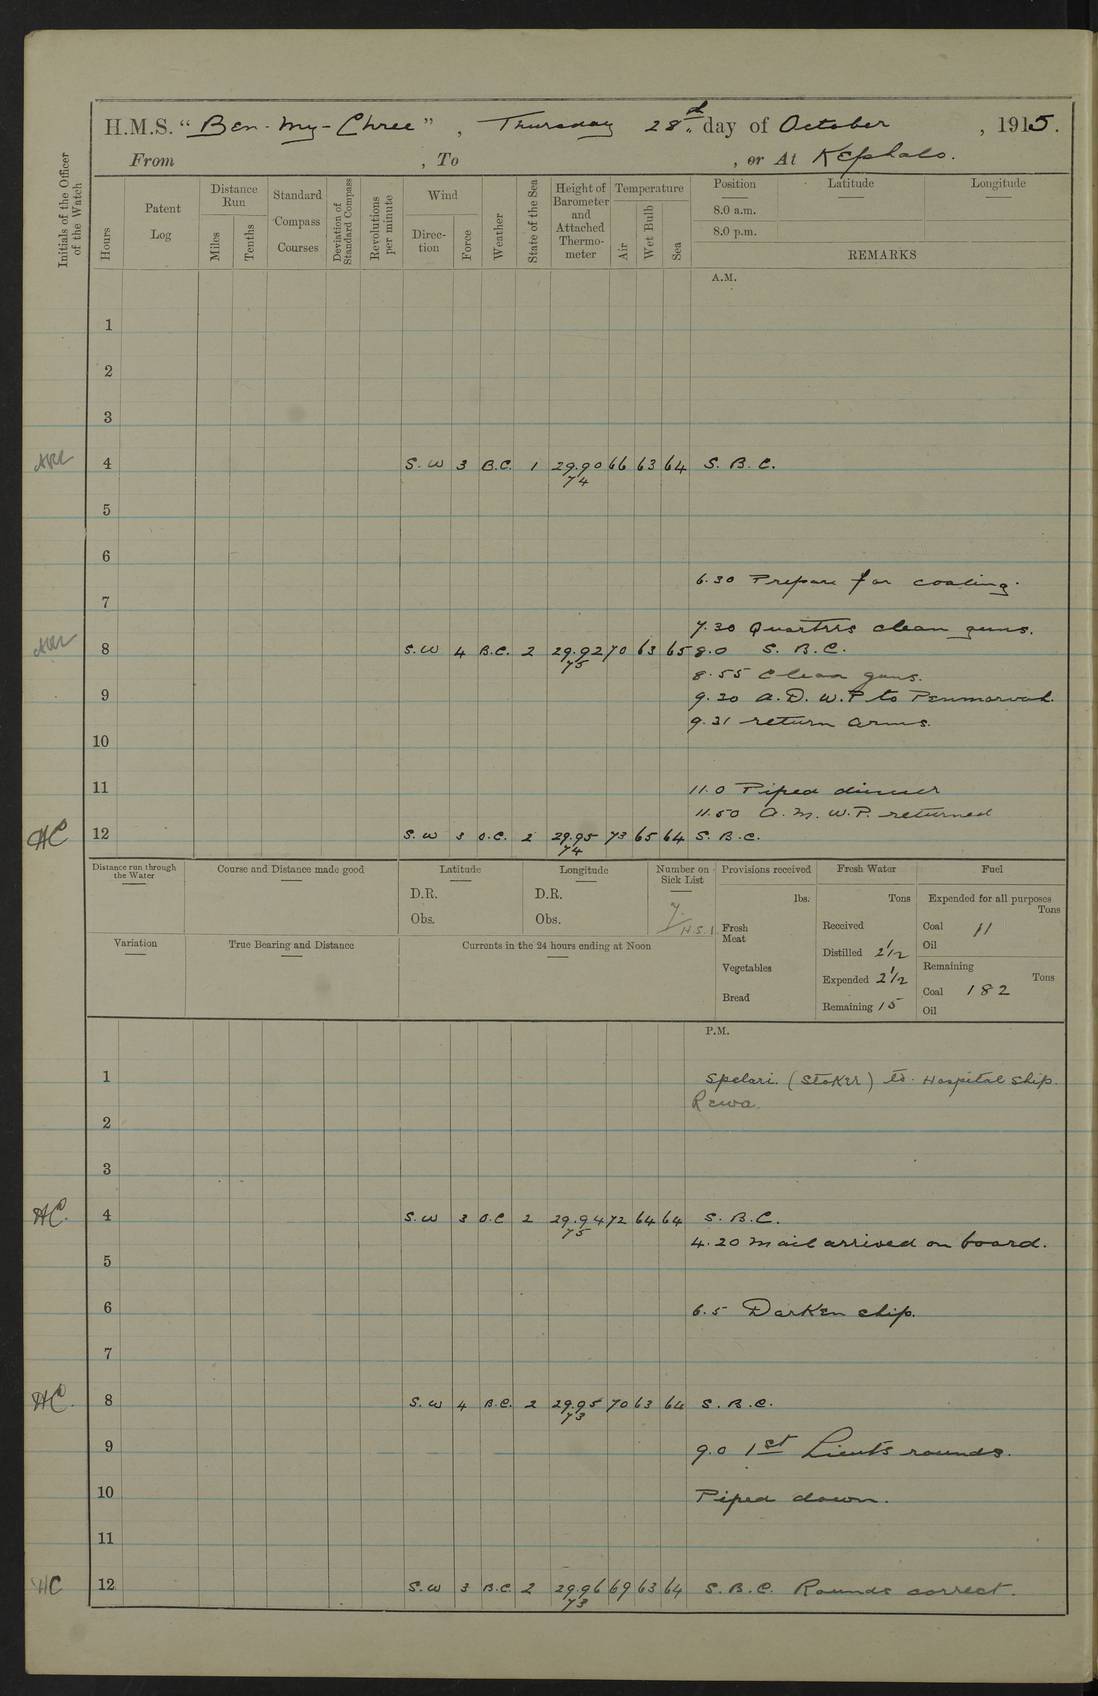 H.M.S. "Ben-My-Chree", Thursday 28th day of October, 1915.
From , To , or At Kephalo.
Initials of the Officer of the Watch
Hours
Patent Log
Distance Run
Miles
Tenths
Standard Compass Courses
Deviation of Standard Compass
Revolutions per minute
Wind
Direc-tion
Force
Weather
State of the Sea
Height of Barometer and Attached Thermo-meter
Temperature
Air
Wet Bulb
Sea
Position Latitude Longitude
8.0 a.m.
8.0 p.m.
REMARKS
A.M.
1
2
3
4 S.W 3 B.C. 1 29.90 66 63 64 S. B. C.
74
5
6
6.30 Prepare for coaling.
7
7.30 Quarters clean guns.
8 S.W 4 B.C. 2 29.92 70 63 65 8.0 S. B. C.
75
8.55 Clean guns.
9 9.20 A.D. W.P to Penmarvah.
9.31 return arms.
10
11 11.0 Piped dinner
11.50 A.M. W.P. returned
HC 12 S.W 3 O.C. 2 29.95 73 65 64 S. B. C.
74
Distance run through the Water
Course and Distance made good
Latitude
D.R.
Obs.
Longitude
D.R.
Obs.
Number on Sick List
7. H.S.1
Provisions received
lbs.
Fresh Meat
Vegetables
Bread
Fresh Water
Tons
Received
Distilled 2 1/2
Expended 2 1/2
Remaining 15
Fuel
Expended for all purposes
Tons
Coal 11
Oil
Remaining
Tons
Coal 182
Oil
Variation
True Bearing and Distance
Currents in the 24 hours ending at Noon
P.M.
1 Spelari. (Stoker) to Hospital Ship.
Rewa.
2
3
HC. 4 S.W 3 O.C 2 29.94 72 64 64 S. B. C.
75
4.20 Mail arrived on board.
5
6 6.5 Darken ship.
7
HC. 8 S.W 4 B.C. 2 29.95 70 63 64 S. B. C.
73
9 9.0 1st Lieuts rounds.
10 Piped down.
11
HC 12 S.W 3 B.C. 2 29.96 69 63 64 S. B. C. Rounds correct.
73